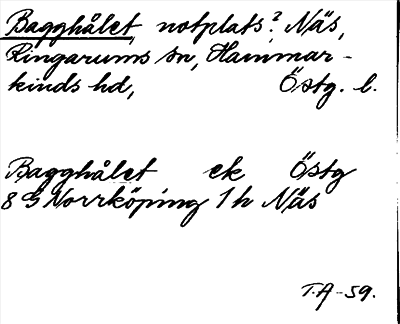 Bagghålet, notplats? Näs,
Ringarums sn, Hammar-
kinds hd, Östg. l.
Bagghålet ek Östg
8 G Norrköping 1 h Näs
T.A-59.